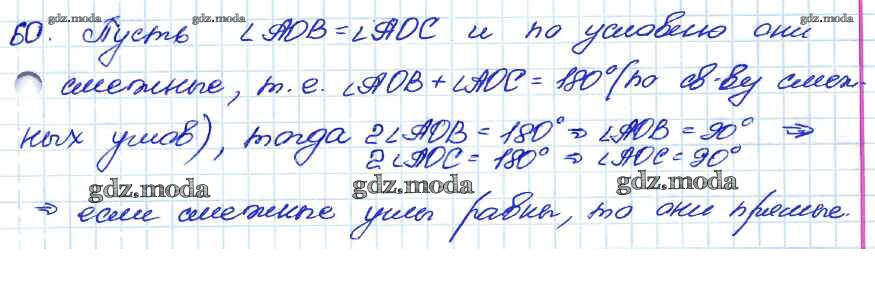 gdz.moda gdz.moda gdz.moda gdz.moda
60. Пусть ∠AOB = ∠AOC и по условию они
смежные, т. е. ∠AOB + ∠AOC = 180° (по св-ву смеж-
ных углов), тогда 2∠AOB = 180° ⇒ ∠AOB = 90° ⇒
2∠AOC = 180° ⇒ ∠AOC = 90°
gdz.moda gdz.moda gdz.moda
⇒ если смежные углы равны, то они прямые.